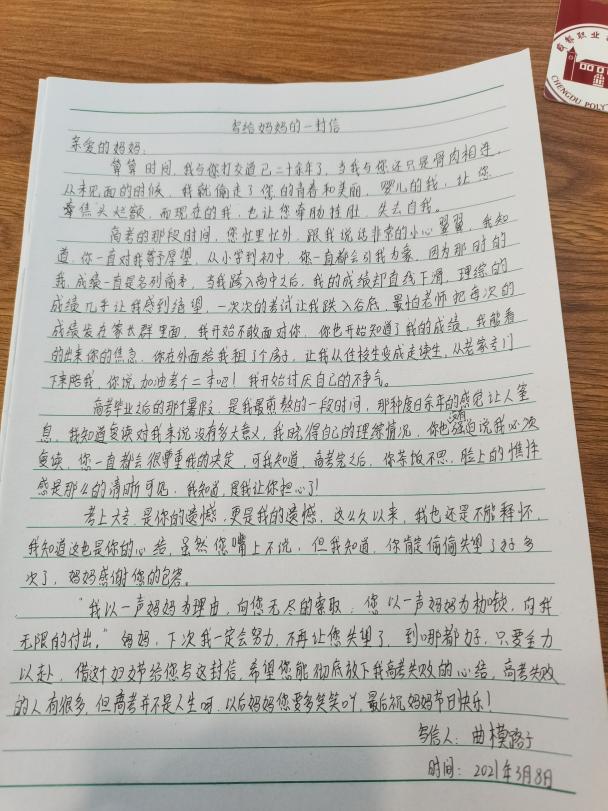 写给妈妈的一封信
亲爱的妈妈:
算算时间,我与你打交道已二十余年了,当我与你还只是骨肉相连,
从未见面的时候,我就偷走了您的青春和美丽,婴儿的我,让您
焦头烂额,而现在的我,也让您牵肠挂肚,失去自我。
高考的那段时间,您忙里忙外,跟我说话非常的小心翼翼,我知
道,你一直对我寄予厚望,从小学到初中,你一直都会引我为豪,因为那时的
我,成绩一直是名列前茅,当我跨入高中之后,我的成绩却直线下滑,理综的
成绩几乎让我感到绝望,一次次的考试让我跌入谷底,最怕老师把每次的
成绩发在家长群里面,我开始不敢面对你,你也开始知道了我的成绩,我能看
的出来你的焦急,你在外面给我租了个房子,让我从住校生变成走读生,从老家专门
下来陪我,你说,加油考个二本吧!我开始讨厌自己的不争气。
高考毕业之后的那个暑假,是我最煎熬的一段时间,那种度日如年的感觉让人窒
息,我知道复读对我来说没有多大意义,我晓得自己的理综情况,你也没有强迫说我必须
复读,您一直都会很尊重我的决定,可我知道,高考完之后,你茶饭不思,脸上的憔悴
感是那么的清晰可见,我知道,是我让你担心了!
考上大专,是你的遗憾,更是我的遗憾,这么久以来,我也还是不能释怀,
我知道这也是你的心结,虽然您嘴上不说,但我知道,你肯定偷偷失望了好多
次了,妈妈感谢你的包容。
“我以一声妈妈为理由,向您无尽的索取,您以一声妈妈为枷锁,向我
无限的付出。”妈妈,下次我一定会努力,不再让您失望了,到哪都好,只要全力
以赴,借这个妇女节给您写这封信,希望您能彻底放下我高考失败的心结,高考失败
的人有很多,但高考并不是人生呀,以后妈妈您要多笑笑吖,最后祝妈妈节日快乐!
写信人:曲模
时间:2021年3月8日
职业
CHENGDU POLY